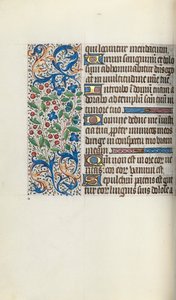 qui loquuntur mendacium.
Virum sanguinum et dolo
sum abhominabitur dominus ego
Introibo in domum tuam a
dorabo ad templum sanctum tuum in
timore tuo
Domine deduc me in iusti
cia tua propter inimicos meos
dirige in conspectu tuo viam
meam
Quoniam non est in ore eorum ve
ritas: cor eorum vanum est
Sepulchrum patens est gut
tur eorum linguis suis dolose a